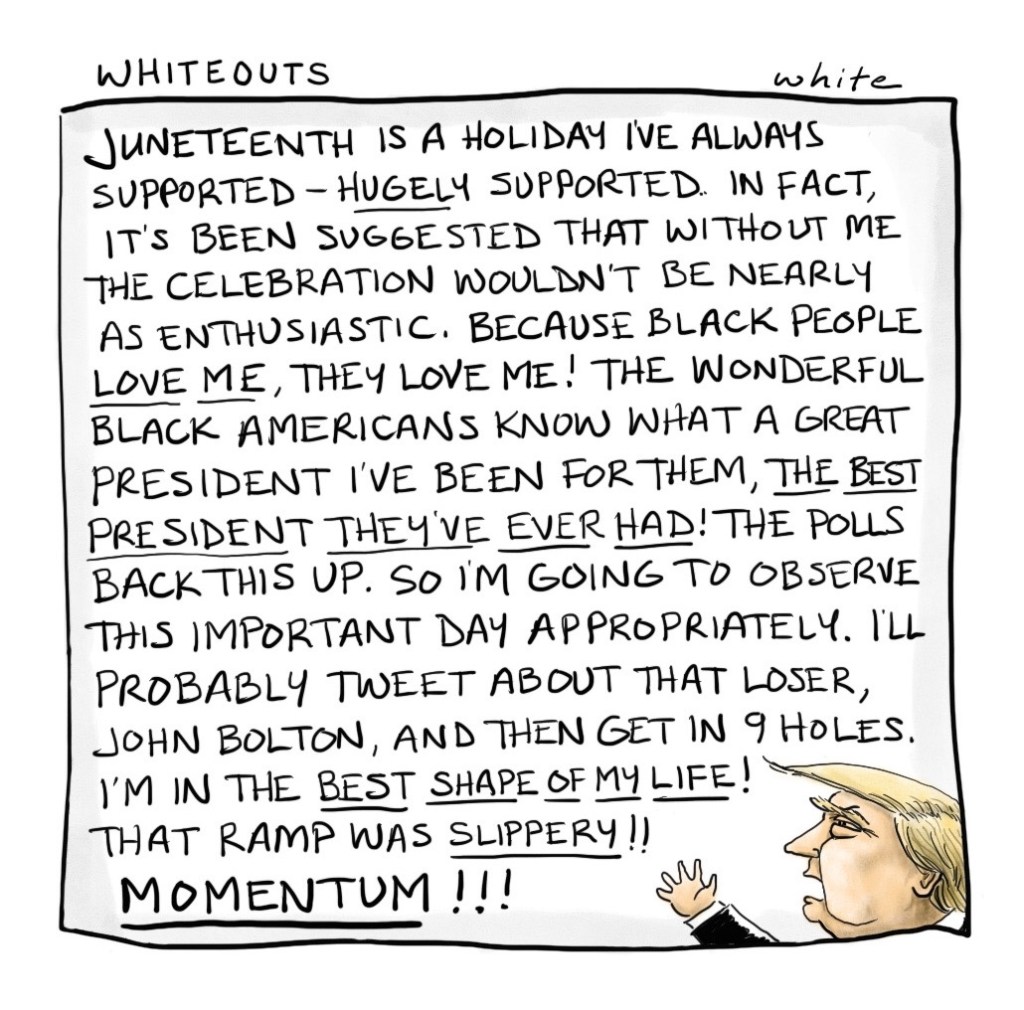 WHITEOUTS
white
JUNETEENTH IS A HOLIDAY I'VE ALWAYS
SUPPORTED – HUGELY SUPPORTED. IN FACT,
IT'S BEEN SUGGESTED THAT WITHOUT ME
THE CELEBRATION WOULDN'T BE NEARLY
AS ENTHUSIASTIC. BECAUSE BLACK PEOPLE
LOVE ME, THEY LOVE ME! THE WONDERFUL
BLACK AMERICANS KNOW WHAT A GREAT
PRESIDENT I'VE BEEN FOR THEM, THE BEST
PRESIDENT THEY'VE EVER HAD! THE POLLS
BACK THIS UP. SO I'M GOING TO OBSERVE
THIS IMPORTANT DAY APPROPRIATELY. I'LL
PROBABLY TWEET ABOUT THAT LOSER,
JOHN BOLTON, AND THEN GET IN 9 HOLES.
I'M IN THE BEST SHAPE OF MY LIFE!
THAT RAMP WAS SLIPPERY!!
MOMENTUM!!!